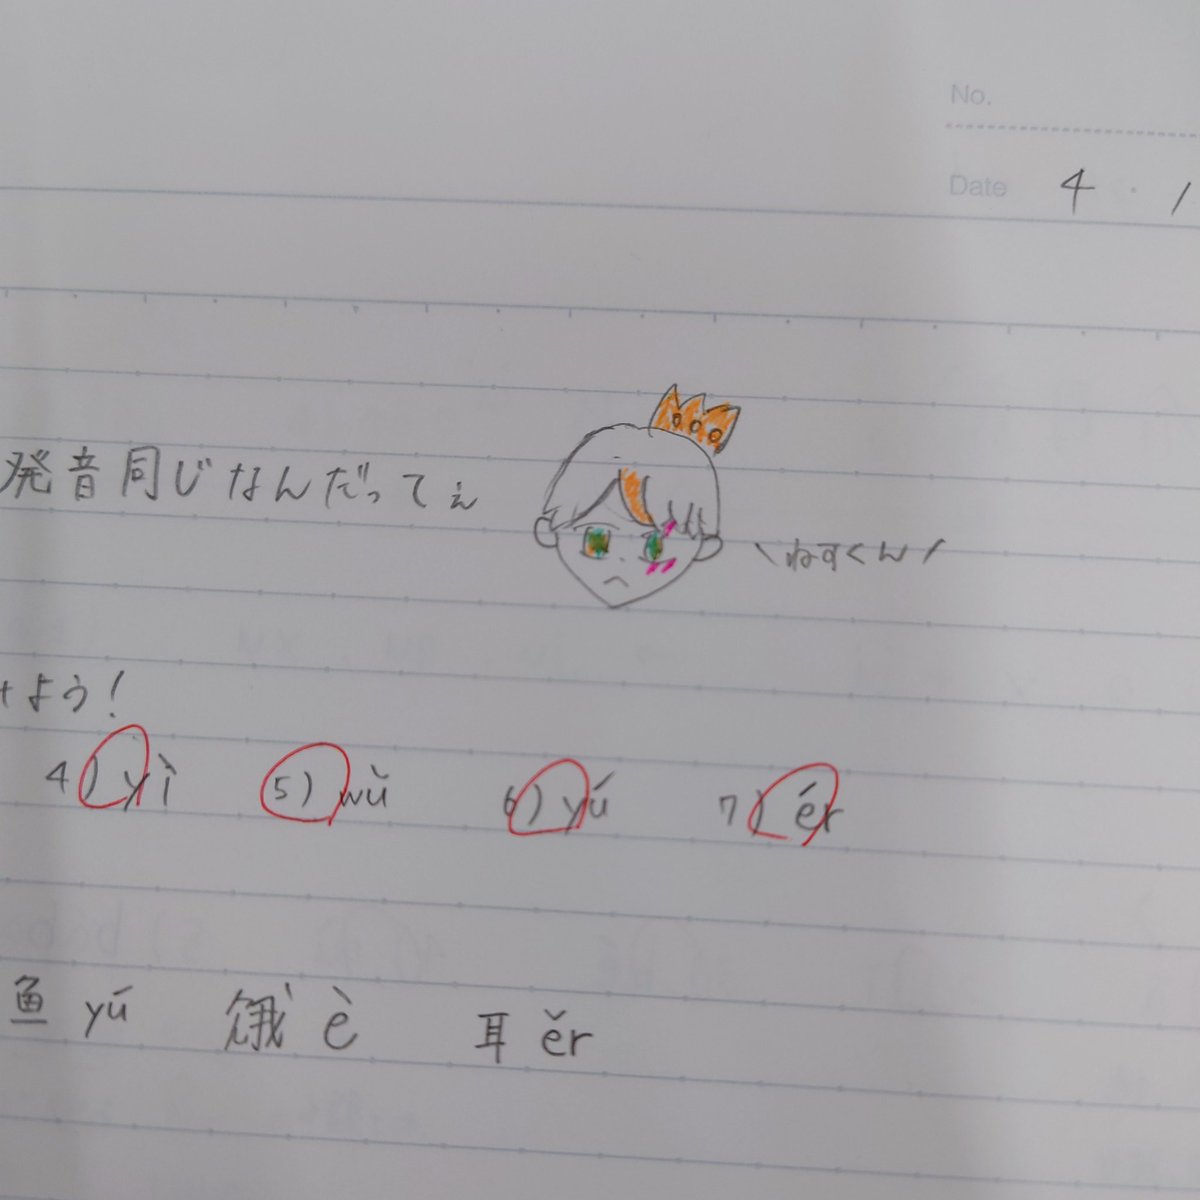 No.
Date 4・1
発音同じなんだってぇ
\ねずくん/
けよう!
4) yì 5) wǔ 6) yú 7) ér
鱼 yú 饿 è 耳 ěr